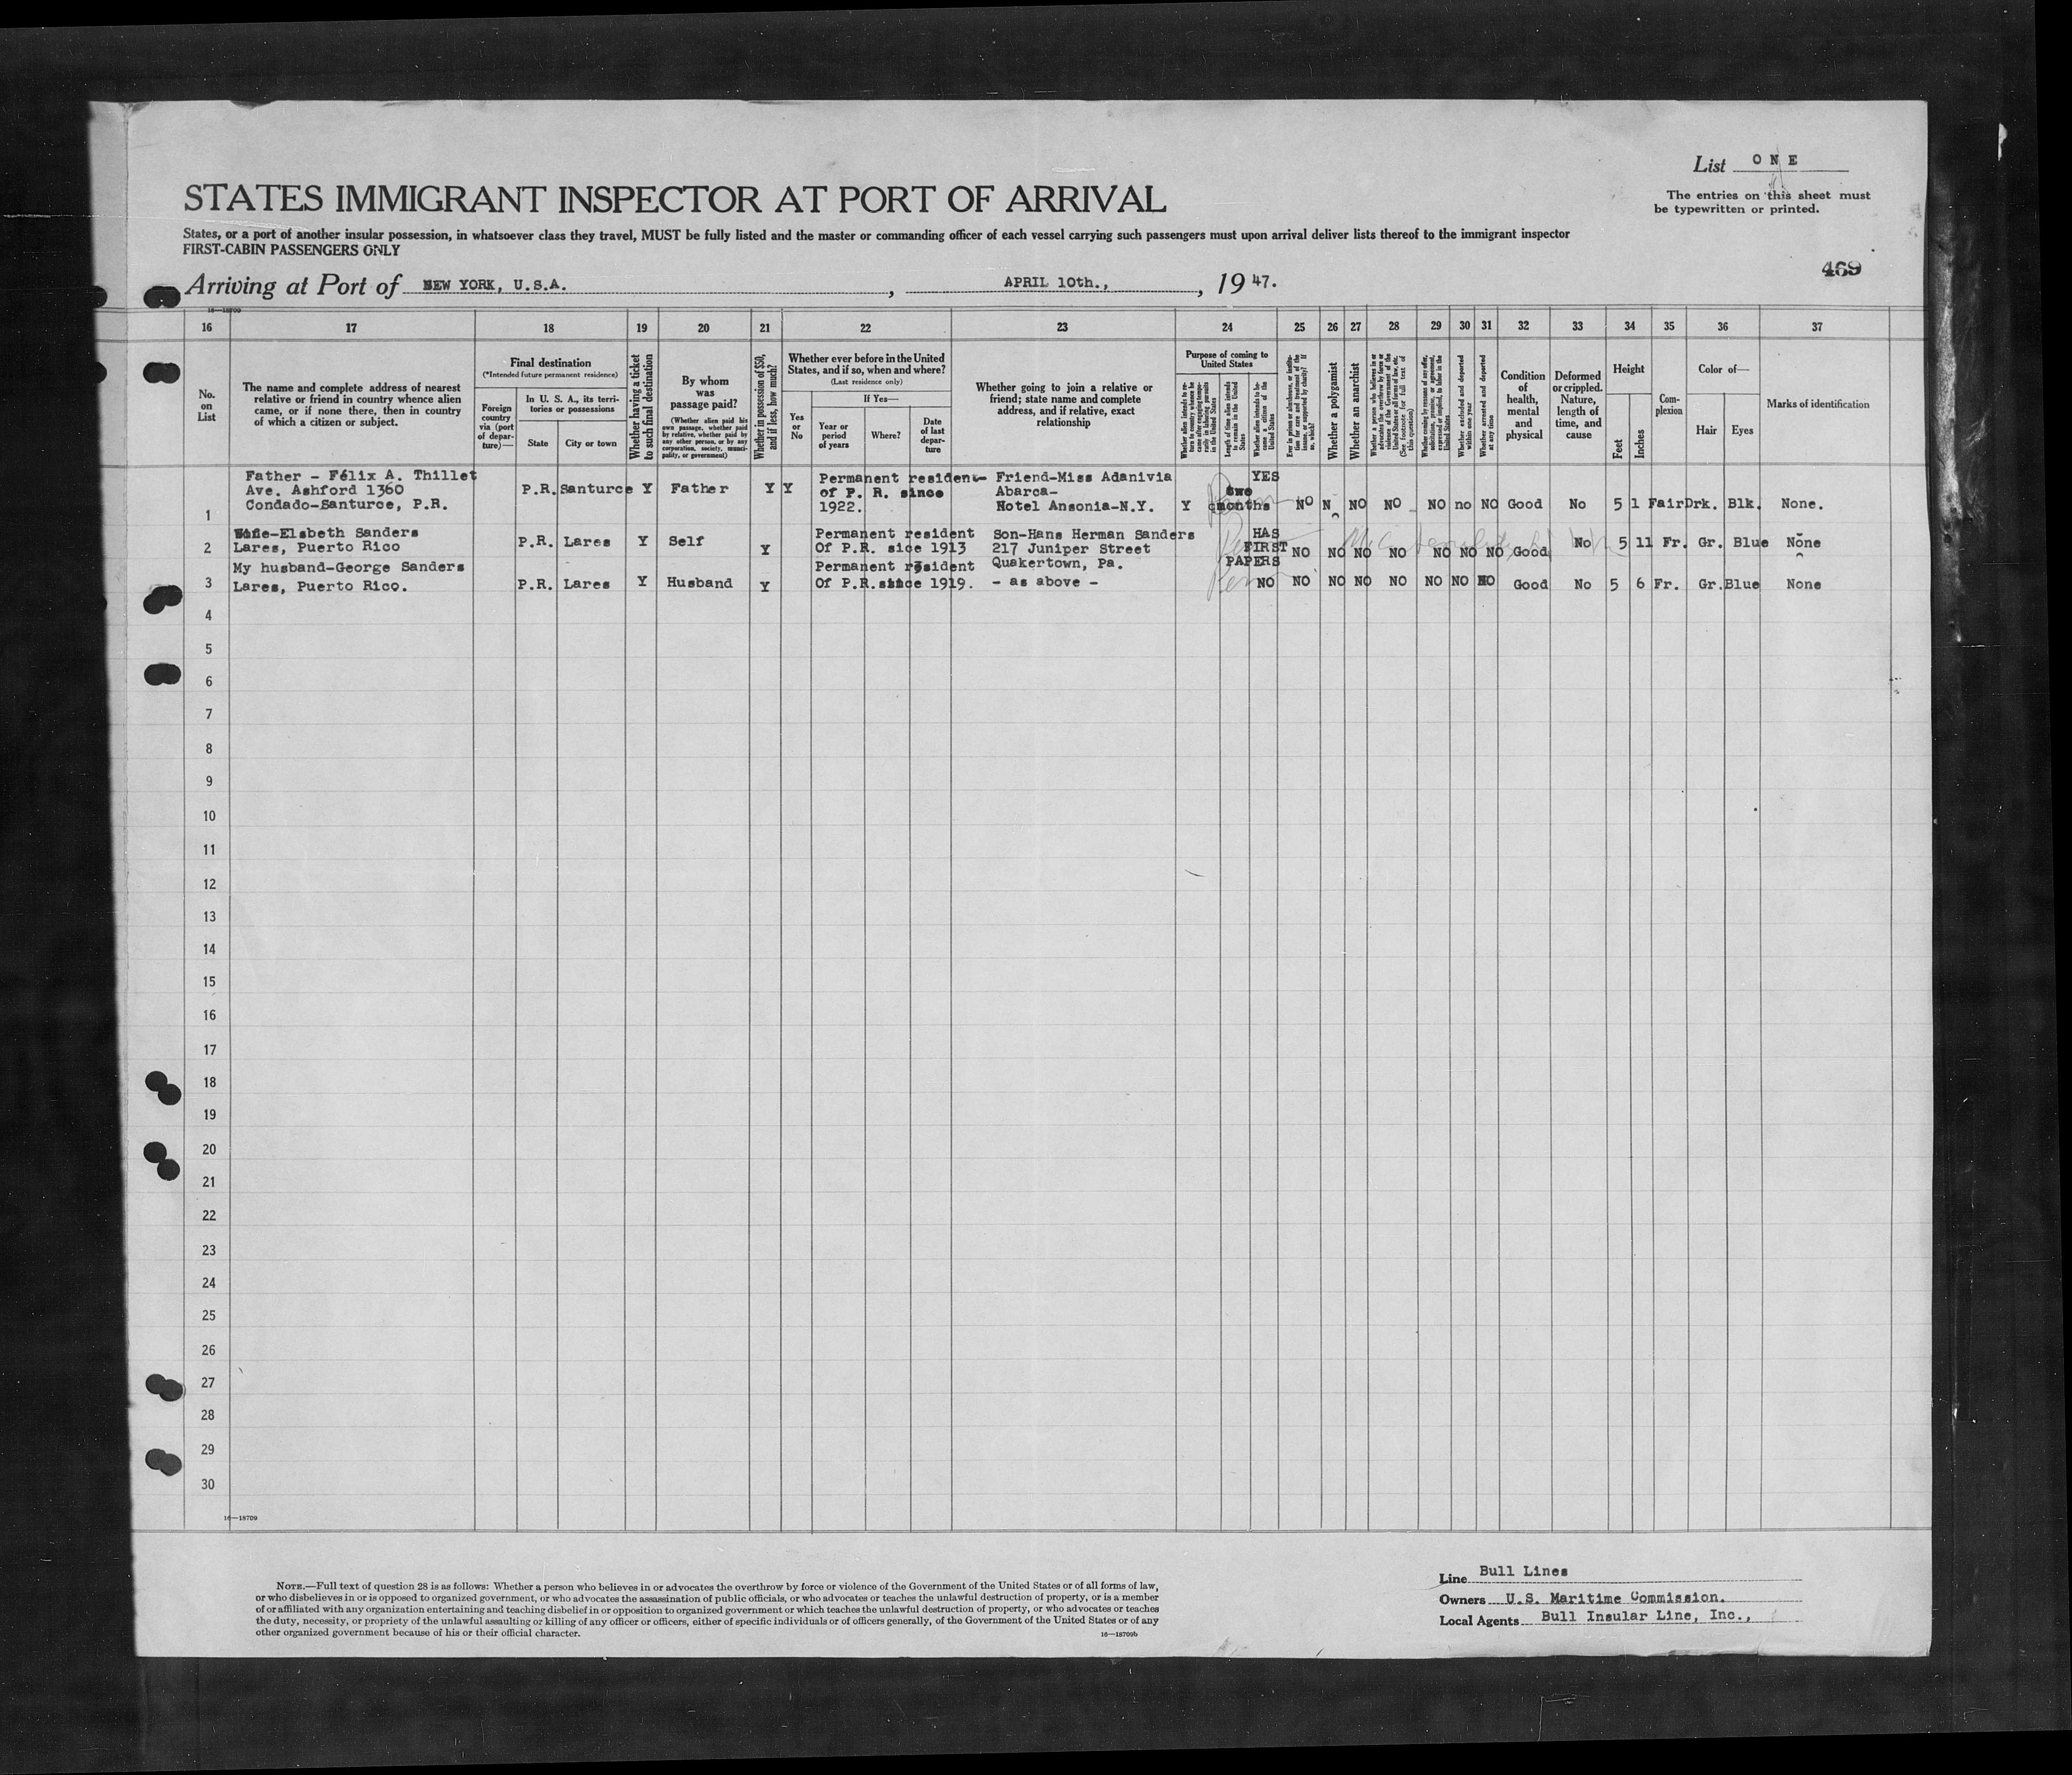 List ONE
The entries on this sheet must
be typewritten or printed.
STATES IMMIGRANT INSPECTOR AT PORT OF ARRIVAL
States, or a port of another insular possession, in whatsoever class they travel, MUST be fully listed and the master or commanding officer of each vessel carrying such passengers must upon arrival deliver lists thereof to the immigrant inspector
FIRST-CABIN PASSENGERS ONLY
469
Arriving at Port of NEW YORK, U.S.A. , APRIL 10th., , 1947.
16—18709
16 17 18 19 20 21 22 23 24 25 26 27 28 29 30 31 32 33 34 35 36 37
No.
on
List
The name and complete address of nearest
relative or friend in country whence alien
came, or if none there, then in country
of which a citizen or subject.
Final destination
(*Intended future permanent residence)
Foreign
country
via (port
of depar-
ture)—
In U. S. A., its terri-
tories or possessions
State
City or town
Whether having a ticket
to such final destination
By whom
was
passage paid?
(Whether alien paid his
own passage, whether paid
by relative, whether paid by
any other person, or by any
corporation, society, munici-
pality, or government)
Whether in possession of $50,
and if less, how much?
Whether ever before in the United
States, and if so, when and where?
(Last residence only)
Yes
or
No
If Yes—
Year or
period
of years
Where?
Date
of last
depar-
ture
Whether going to join a relative or
friend; state name and complete
address, and if relative, exact
relationship
Purpose of coming to
United States
Whether alien intends to re-
turn to country whence he
came after engaging tempo-
rarily in laboring pursuits
in the United States
Length of time alien intends
to remain in the United
States
Whether alien intends to be-
come a citizen of the
United States
Ever in prison or almshouse, or institu-
tion for care and treatment of the
insane, or supported by charity? If
so, which?
Whether a polygamist
Whether an anarchist
Whether a person who believes in or
advocates the overthrow by force or
violence of the Government of the
United States or all forms of law, etc.
(See footnote for full text of
this question)
Whether coming by reason of any offer,
solicitation, promise, or agreement,
expressed or implied, to labor in the
United States
Whether excluded and deported
within one year
Whether arrested and deported
at any time
Condition
of
health,
mental
and
physical
Deformed
or crippled.
Nature,
length of
time, and
cause
Height
Feet
Inches
Com-
plexion
Color of—
Hair
Eyes
Marks of identification
Father - Félix A. Thillet Permanent resident- Friend-Miss Adanivia YES
Ave. Ashford 1360 P.R. Santurce Y Father Y Y of P. R. since Abarca- two
1 Condado-Santurce, P.R. 1922. Hotel Ansonia-N.Y. Y months NO N NO NO NO no NO Good No 5 1 Fair Drk. Blk. None.
Wife-Elsbeth Sanders Permanent resident Son-Hans Herman Sanders HAS
2 Lares, Puerto Rico P.R. Lares Y Self Y Of P.R. sice 1913 217 Juniper Street FIRST NO NO NO NO NO NO NO Good No 5 11 Fr. Gr. Blue None
My husband-George Sanders Permanent resident Quakertown, Pa. PAPERS
3 Lares, Puerto Rico. P.R. Lares Y Husband Y Of P.R.since 1919. - as above - NO NO NO NO NO NO NO NO Good No 5 6 Fr. Gr. Blue None
4
5
6
7
8
9
10
11
12
13
14
15
16
17
18
19
20
21
22
23
24
25
26
27
28
29
30
16—18709
NOTE.—Full text of question 28 is as follows: Whether a person who believes in or advocates the overthrow by force or violence of the Government of the United States or of all forms of law,
or who disbelieves in or is opposed to organized government, or who advocates the assassination of public officials, or who advocates or teaches the unlawful destruction of property, or is a member
of or affiliated with any organization entertaining and teaching disbelief in or opposition to organized government or which teaches the unlawful destruction of property, or who advocates or teaches
the duty, necessity, or propriety of the unlawful assaulting or killing of any officer or officers, either of specific individuals or of officers generally, of the Government of the United States or of any
other organized government because of his or their official character.
16—18709b
Line Bull Lines
Owners U.S. Maritime Commission.
Local Agents Bull Insular Line, Inc.,